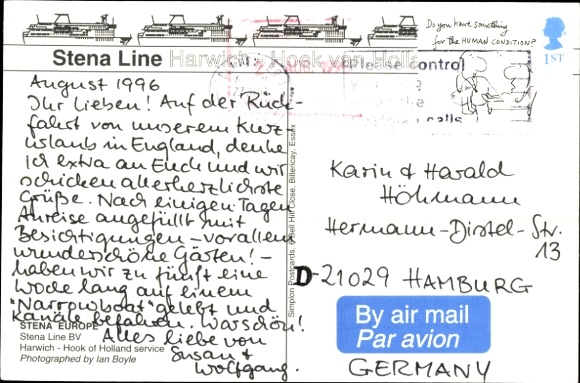 Do you have something
for the HUMAN CONDITION?
1ST
Stena Line Harwich - Hoek van Holland
Please control
calls
August 1996
Ihr Lieben! Auf der Rück-
fahrt von unserem Kurz-
urlaub in England, denke
ich extra an Euch und wir
schicken allerherzlichste
Grüße. Nach einigen Tagen
Anreise angefüllt mit
Besichtigungen - vorallem
wunderschöne Gärten! -
haben wir zu fünft eine
Woche lang auf einem
"Narrowboat" gelebt und
Kanäle befahren. War schön!
Alles liebe von
Susan +
Wolfgang.
STENA EUROPE
Stena Line BV
Harwich - Hook of Holland service
Photographed by Ian Boyle
Simplon Postcards, Bell Hill Close, Billericay, Essex
Karin & Harald
Höhmann
Hermann-Distel-Str.
13
D-21029 HAMBURG
By air mail
Par avion
GERMANY